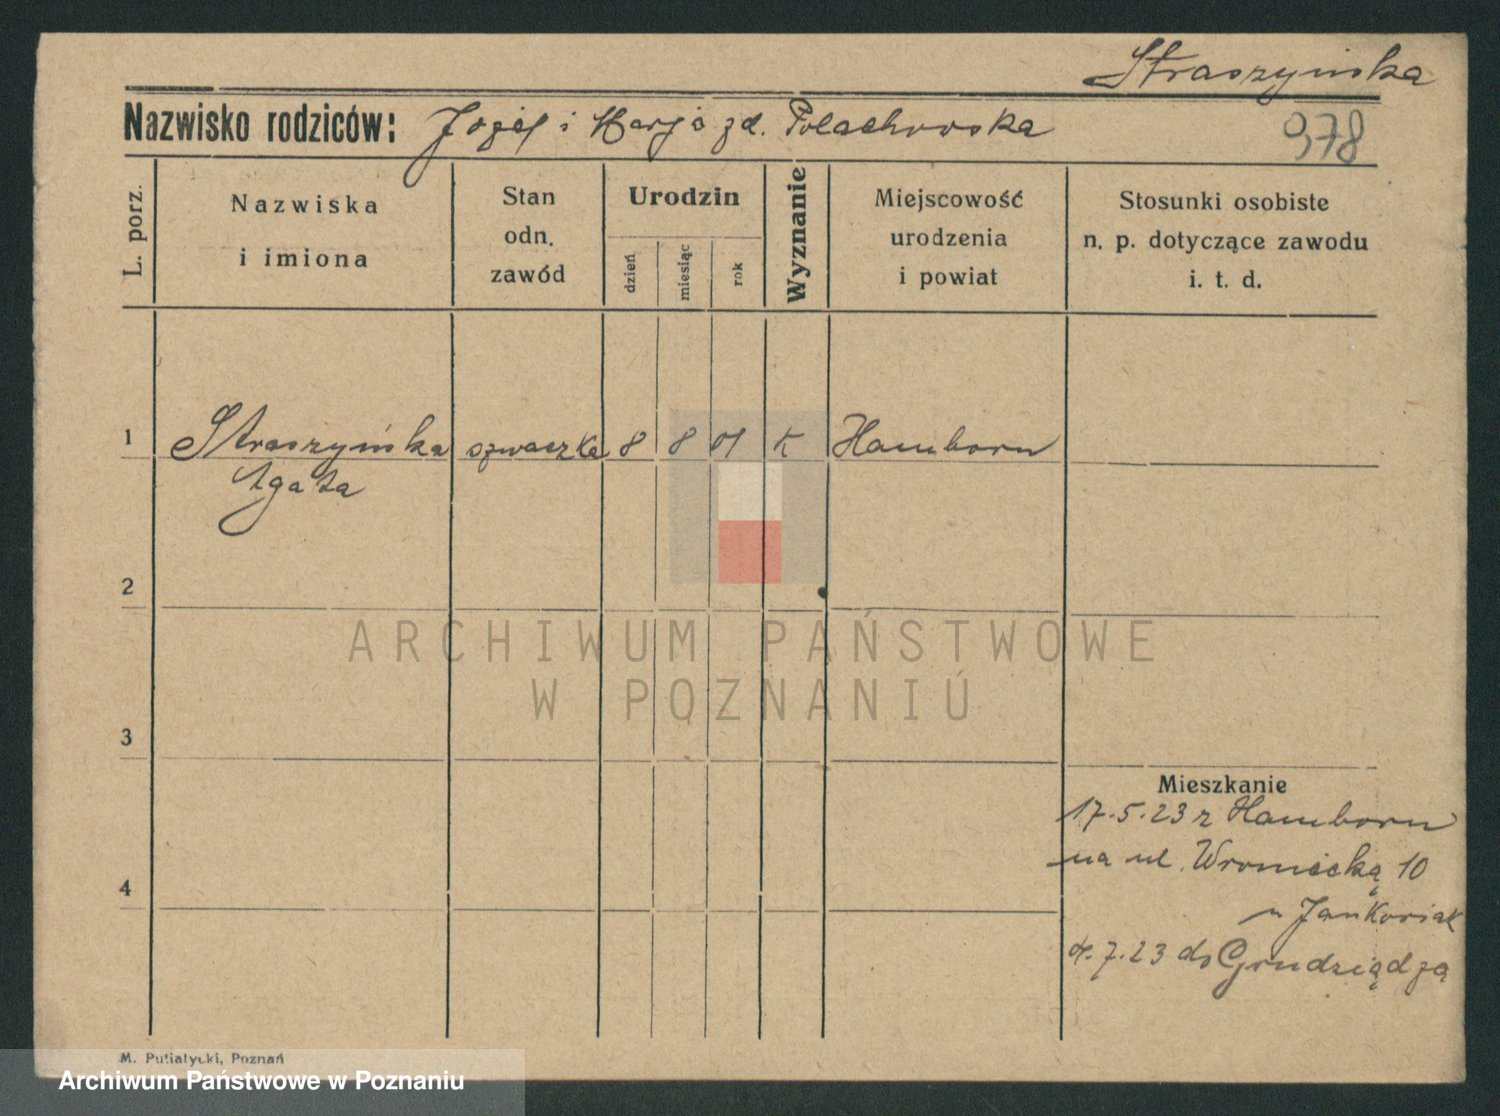 Straszyńska
Nazwisko rodziców: Józef i Marja zd. Polachowska
978
L. porz.
Nazwiska
i imiona
Stan
odn.
zawód
Urodzin
dzień
miesiąc
rok
Wyznanie
Miejscowość
urodzenia
i powiat
Stosunki osobiste
n. p. dotyczące zawodu
i. t. d.
1 Straszyńska szwaczka 8 8 01 K Hamborn
Agata
2
ARCHIWUM PAŃSTWOWE
W POZNANIU
3
Mieszkanie
17.5.23 z Hamborn
na ul. Wroniecką 10
u Jankowiak
4
4.7.23 do Grudziądza
M. Putiatycki, Poznań
Archiwum Państwowe w Poznaniu